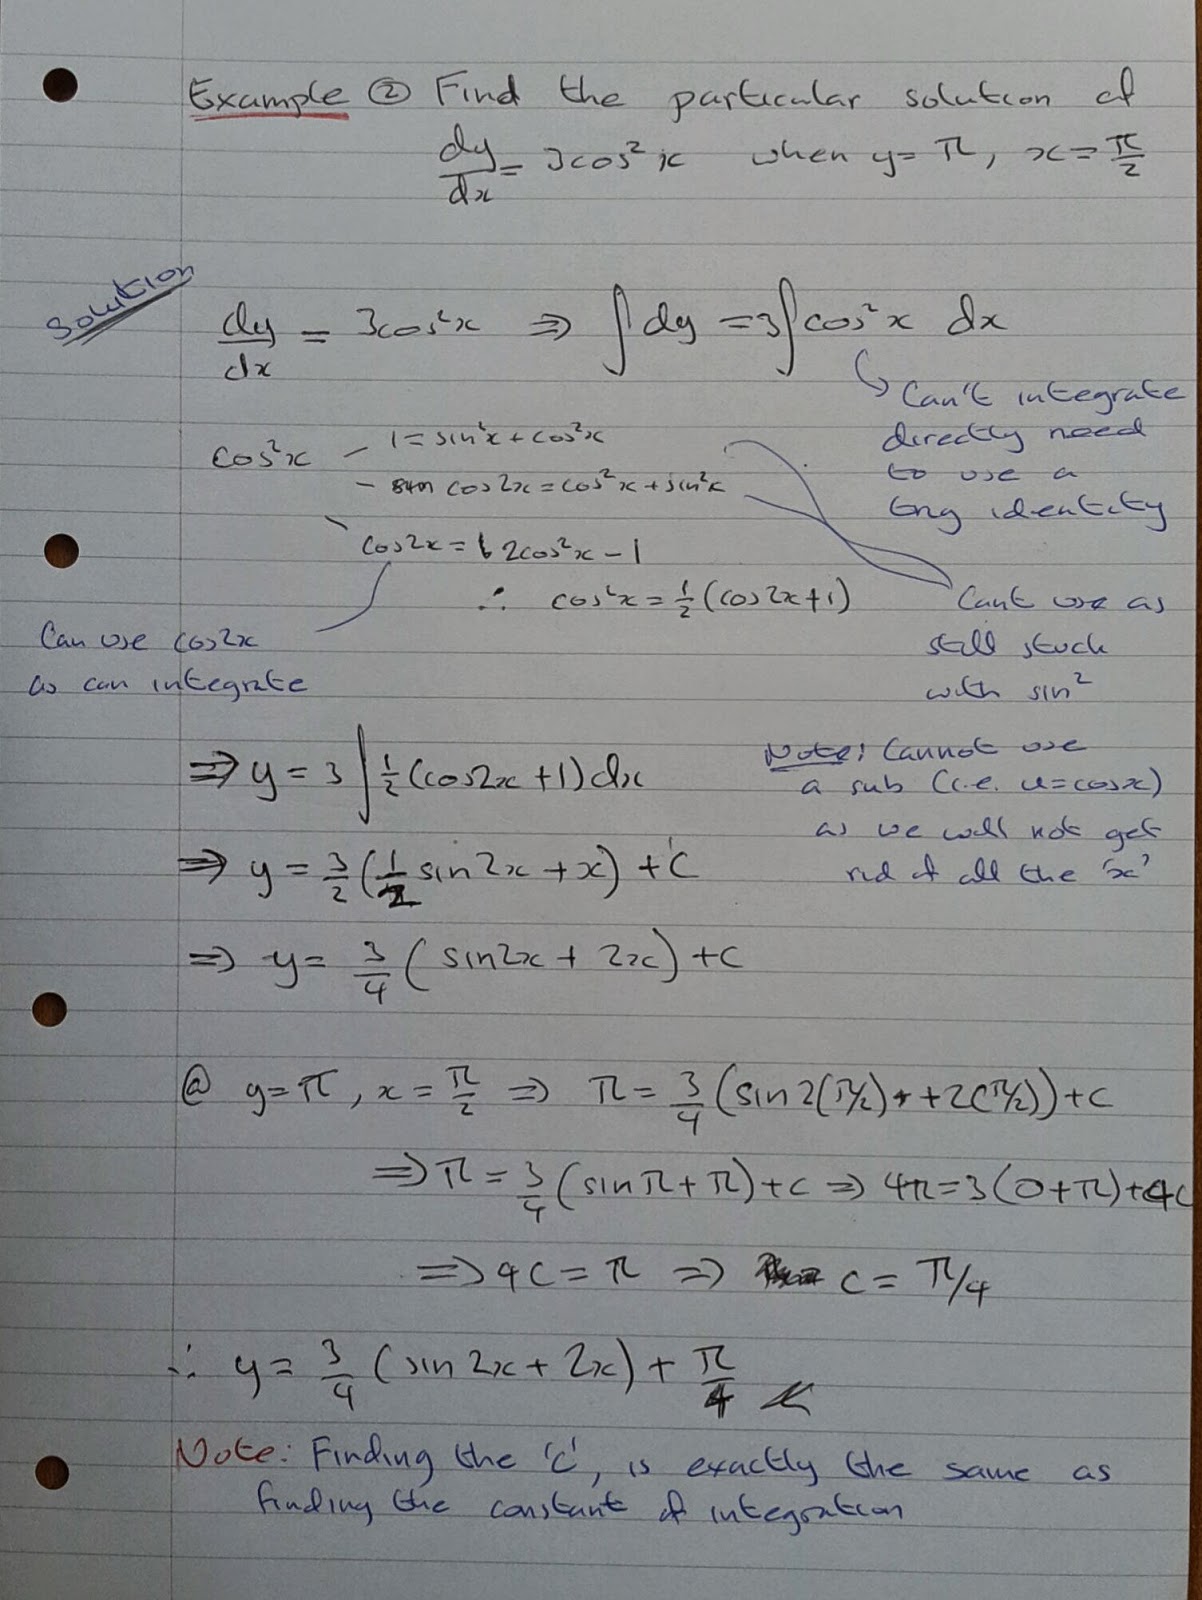 Example ② Find the particular solution of
dy/dx = 3cos²x when y = π, x = π/2
Solution
dy/dx = 3cos²x ⇒ ∫dy = 3∫cos²x dx
Can't integrate
directly need
to use a
trig identity
cos²x – 1 = sin²x + cos²x
– cos2x = cos²x + sin²x
cos2x = 2cos²x – 1
∴ cos²x = ½(cos2x + 1)
Can use cos2x
as can integrate
Cant use as
still stuck
with sin²
⇒ y = 3∫½(cos2x + 1)dx
⇒ y = 3/2(1/2 sin2x + x) + C
⇒ y = 3/4(sin2x + 2x) + C
Note: Cannot use
a sub (i.e. u=cosx)
as we will not get
rid of all the 'x'
@ y = π, x = π/2 ⇒ π = 3/4(sin2(π/2) + + 2(π/2)) + C
⇒ π = 3/4(sinπ + π) + C ⇒ 4π = 3(0 + π) + 4C
⇒ 4C = π ⇒ C = π/4
∴ y = 3/4(sin2x + 2x) + π/4
Note: Finding the 'C', is exactly the same as
finding the constant of integration